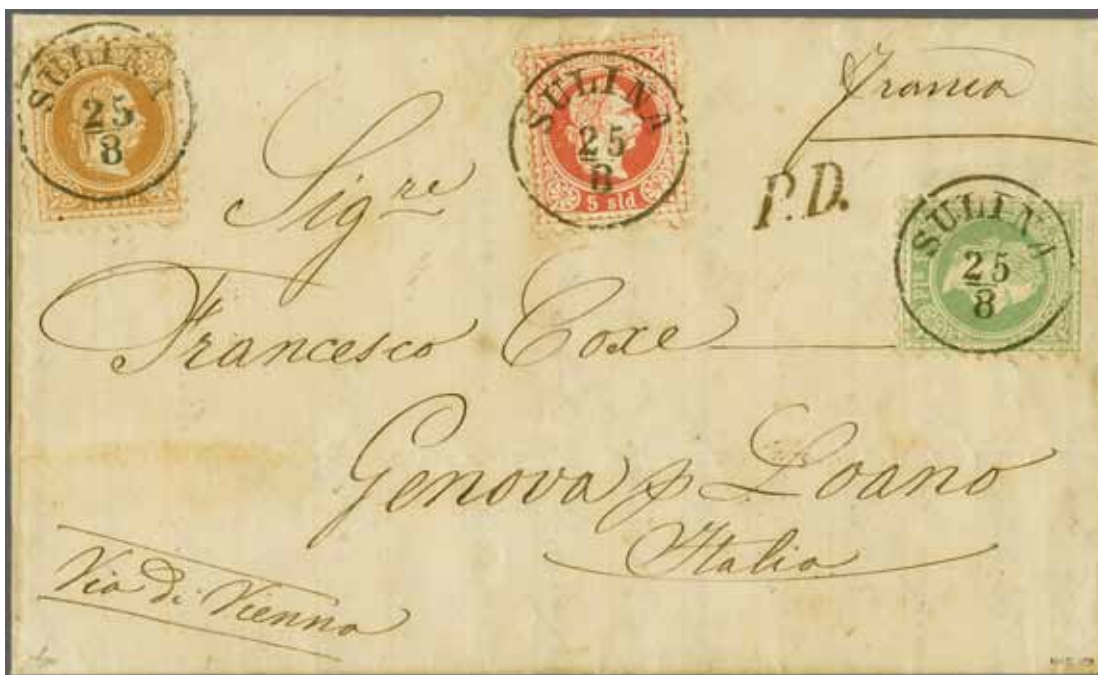 SULINA
25
8
SULINA
25
8
5 sld
Franco
P.D.
SULINA
25
8
Sigre
Francesco Coxe
Genova p Loano
Italia
Via di Vienna